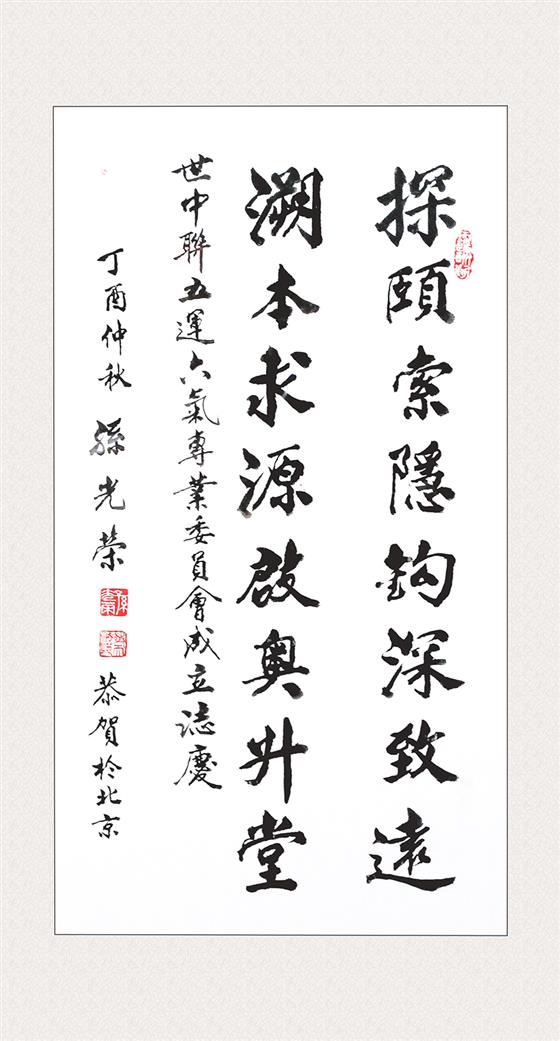 探頤索隱鈎深致遠
溯本求源啟奥升堂
世中聯五運六氣專業委員會成立誌慶
丁酉仲秋 孫光榮 恭賀於北京